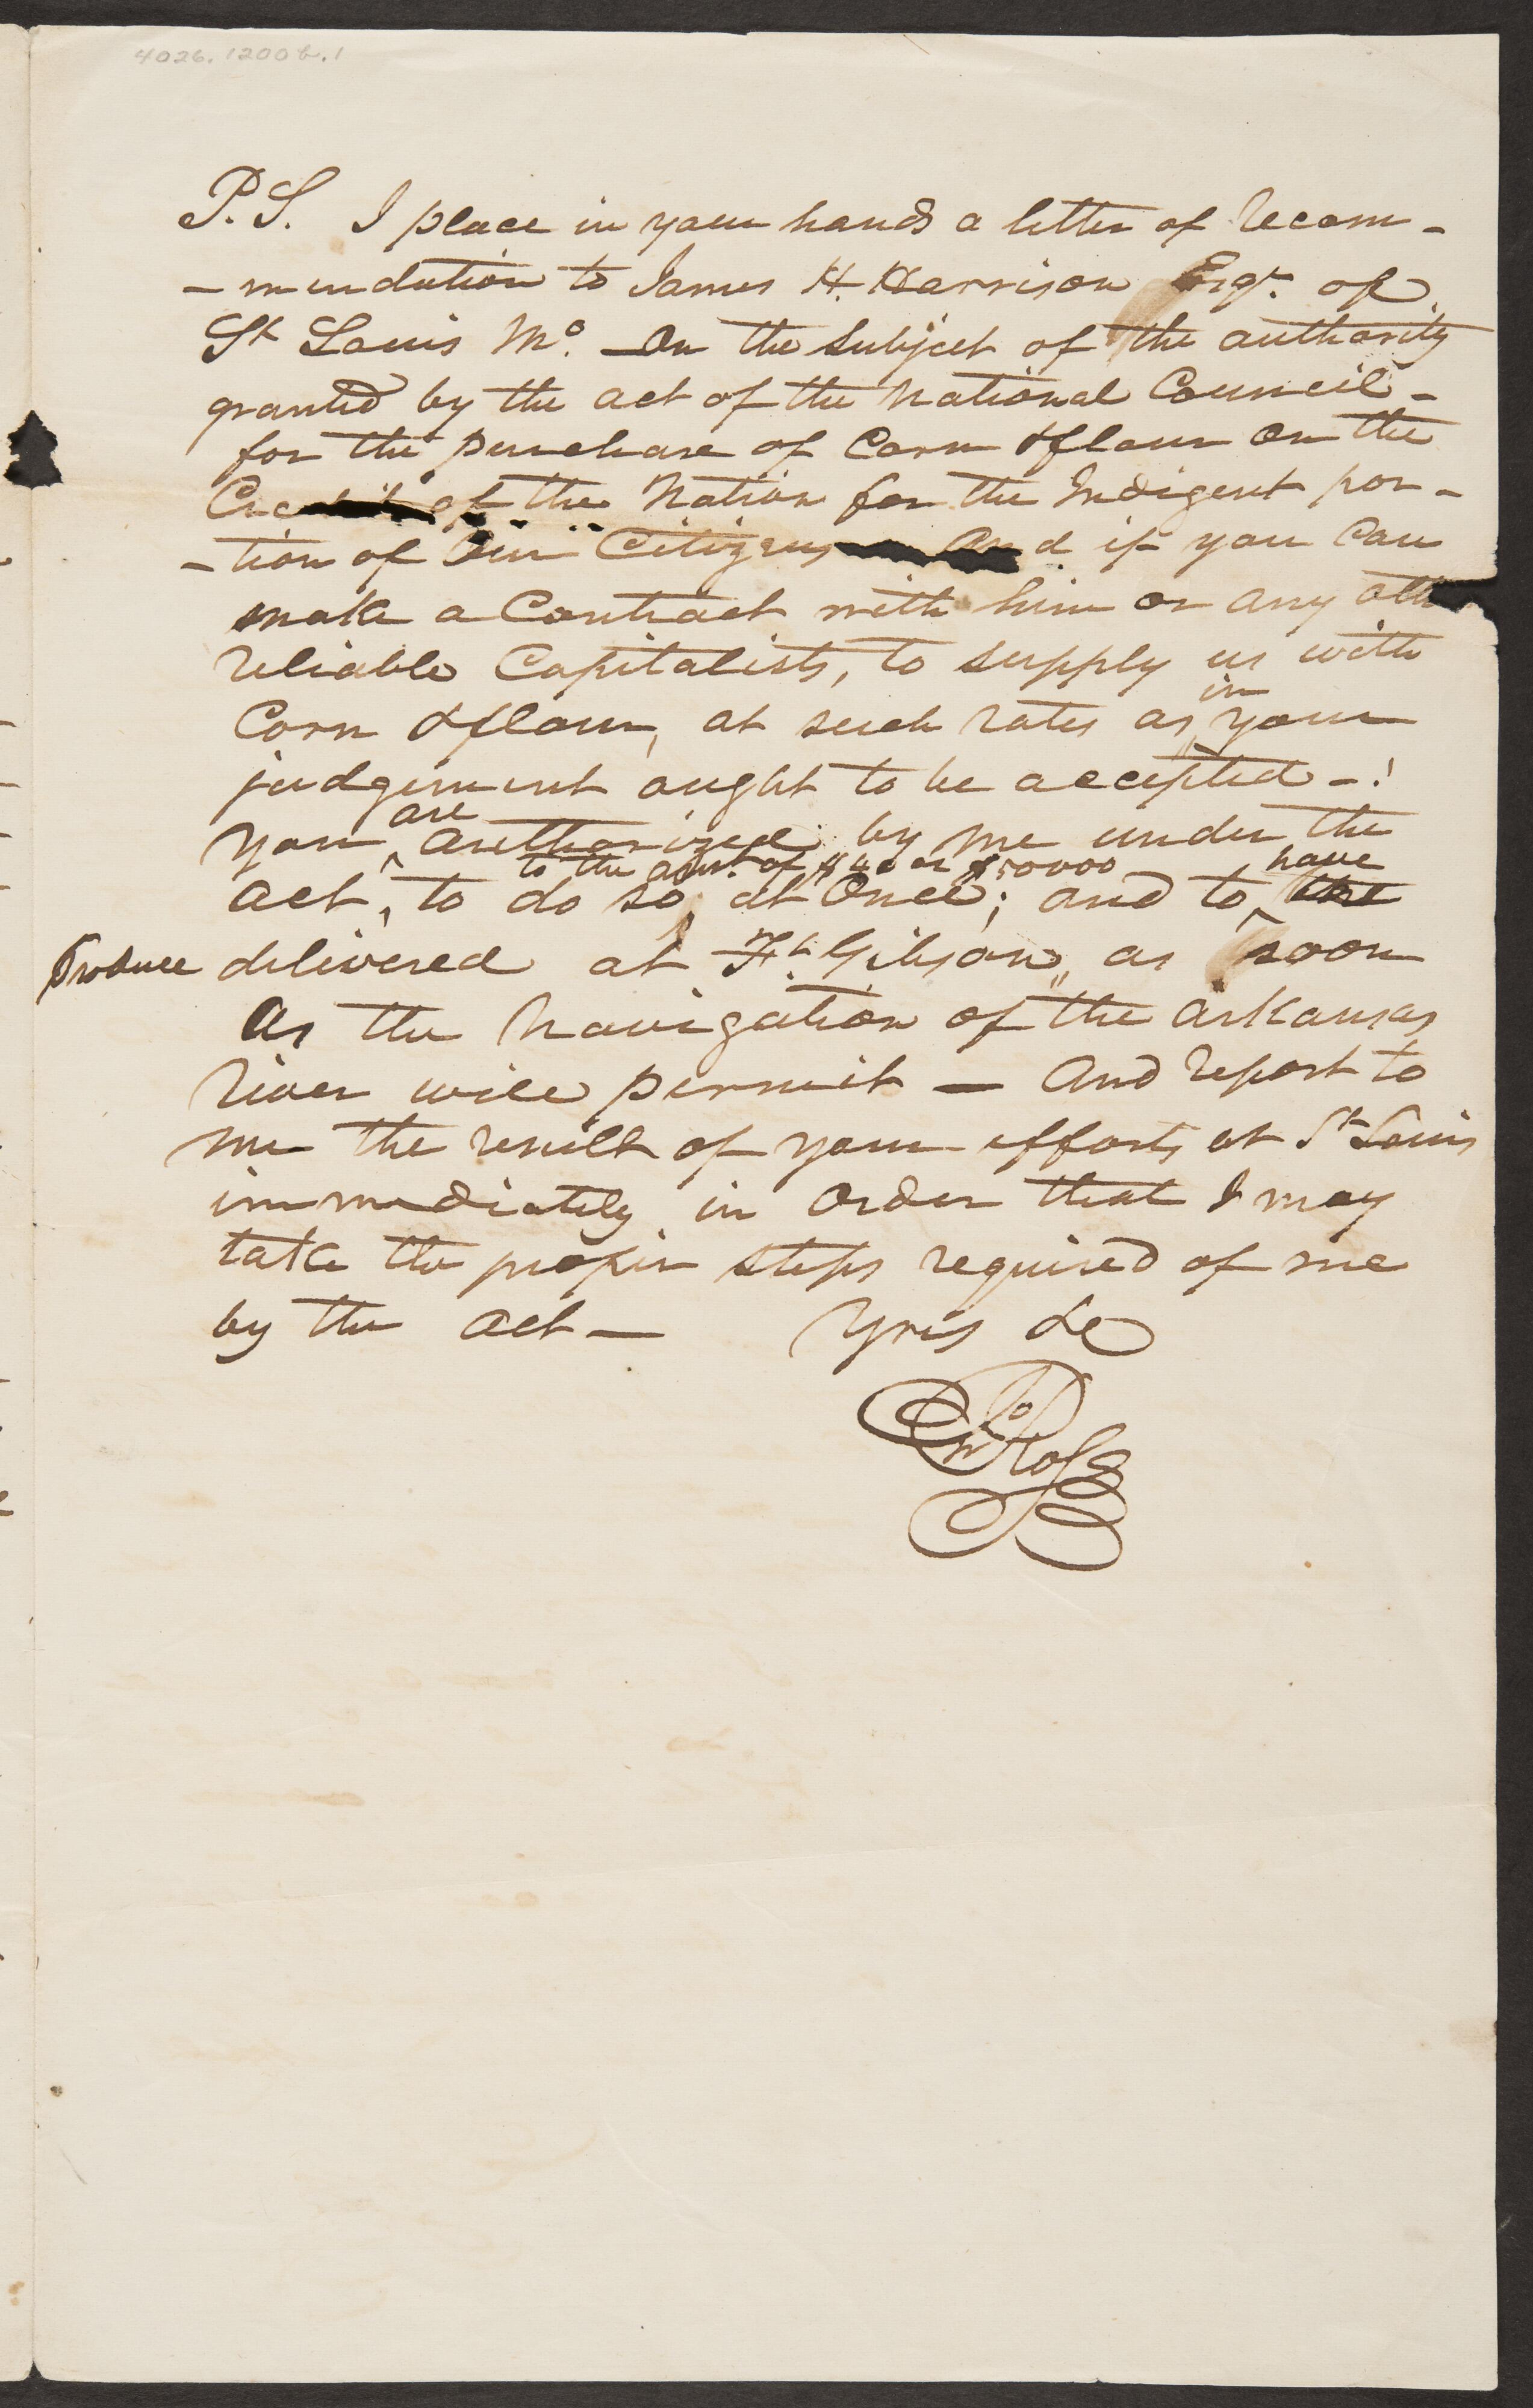 4026.1200b.1
P.S. I place in your hands a letter of recom-
-mendation to James H. Harrison Esqr. of
St Louis Mo. - On the subject of the authority
granted by the act of the National Council -
for the purchase of Corn & flour on the
Credit of the Nation for the Indigent por-
-tion of Our Citizens and if you can
make a Contract with him or any oth
reliable Capitalists, to supply us with
in
Corn & flour, at such rates as, your
judgement ought to be accepted - !
are
You ^ authorized by me under the
to the amt. of $40 or $50000 have
act, to do so, at Once; and to ^ the
Produce delivered at Ft. Gibson, as soon
As the Navigation of the Arkansas
river will permit — And report to
me the result of your efforts at St Louis
immediately in Order that I may
take the proper steps required of me
by the act — Yrs &c
Jno Ross